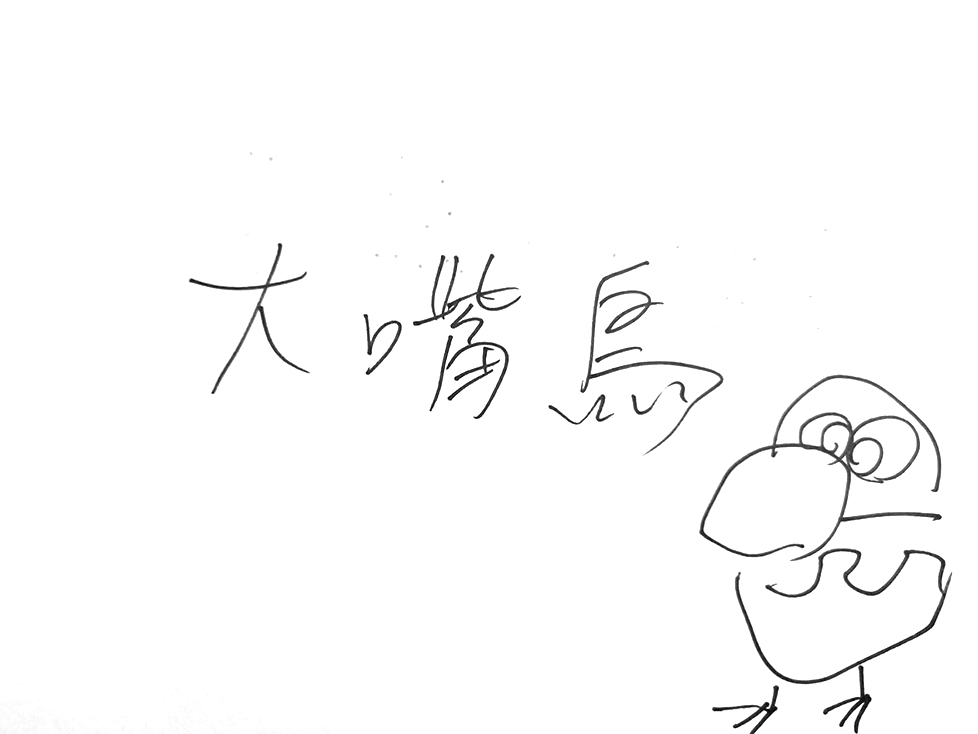 大嘴鳥